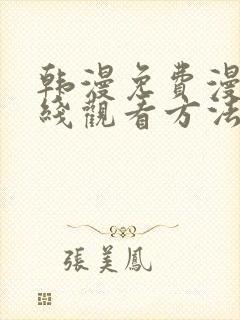 韩漫免費漫
綫觀看方法
張美鳳